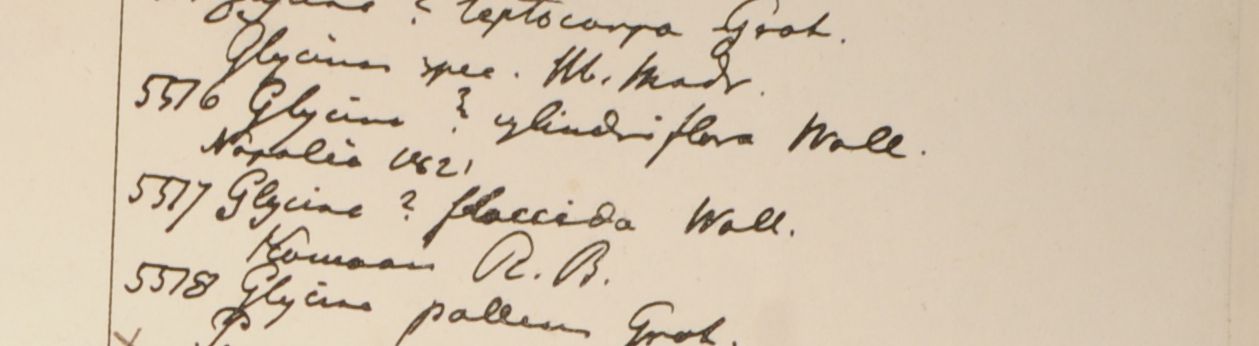 Glycine ? leptocarpa Grah.
Glycine spec. Hb. Madr.
5516 Glycine ? cylindriflora Wall.
Napalia 1821
5517 Glycine ? flaccida Wall.
Kamaon R. B.
5518 Glycine pallens Grah.